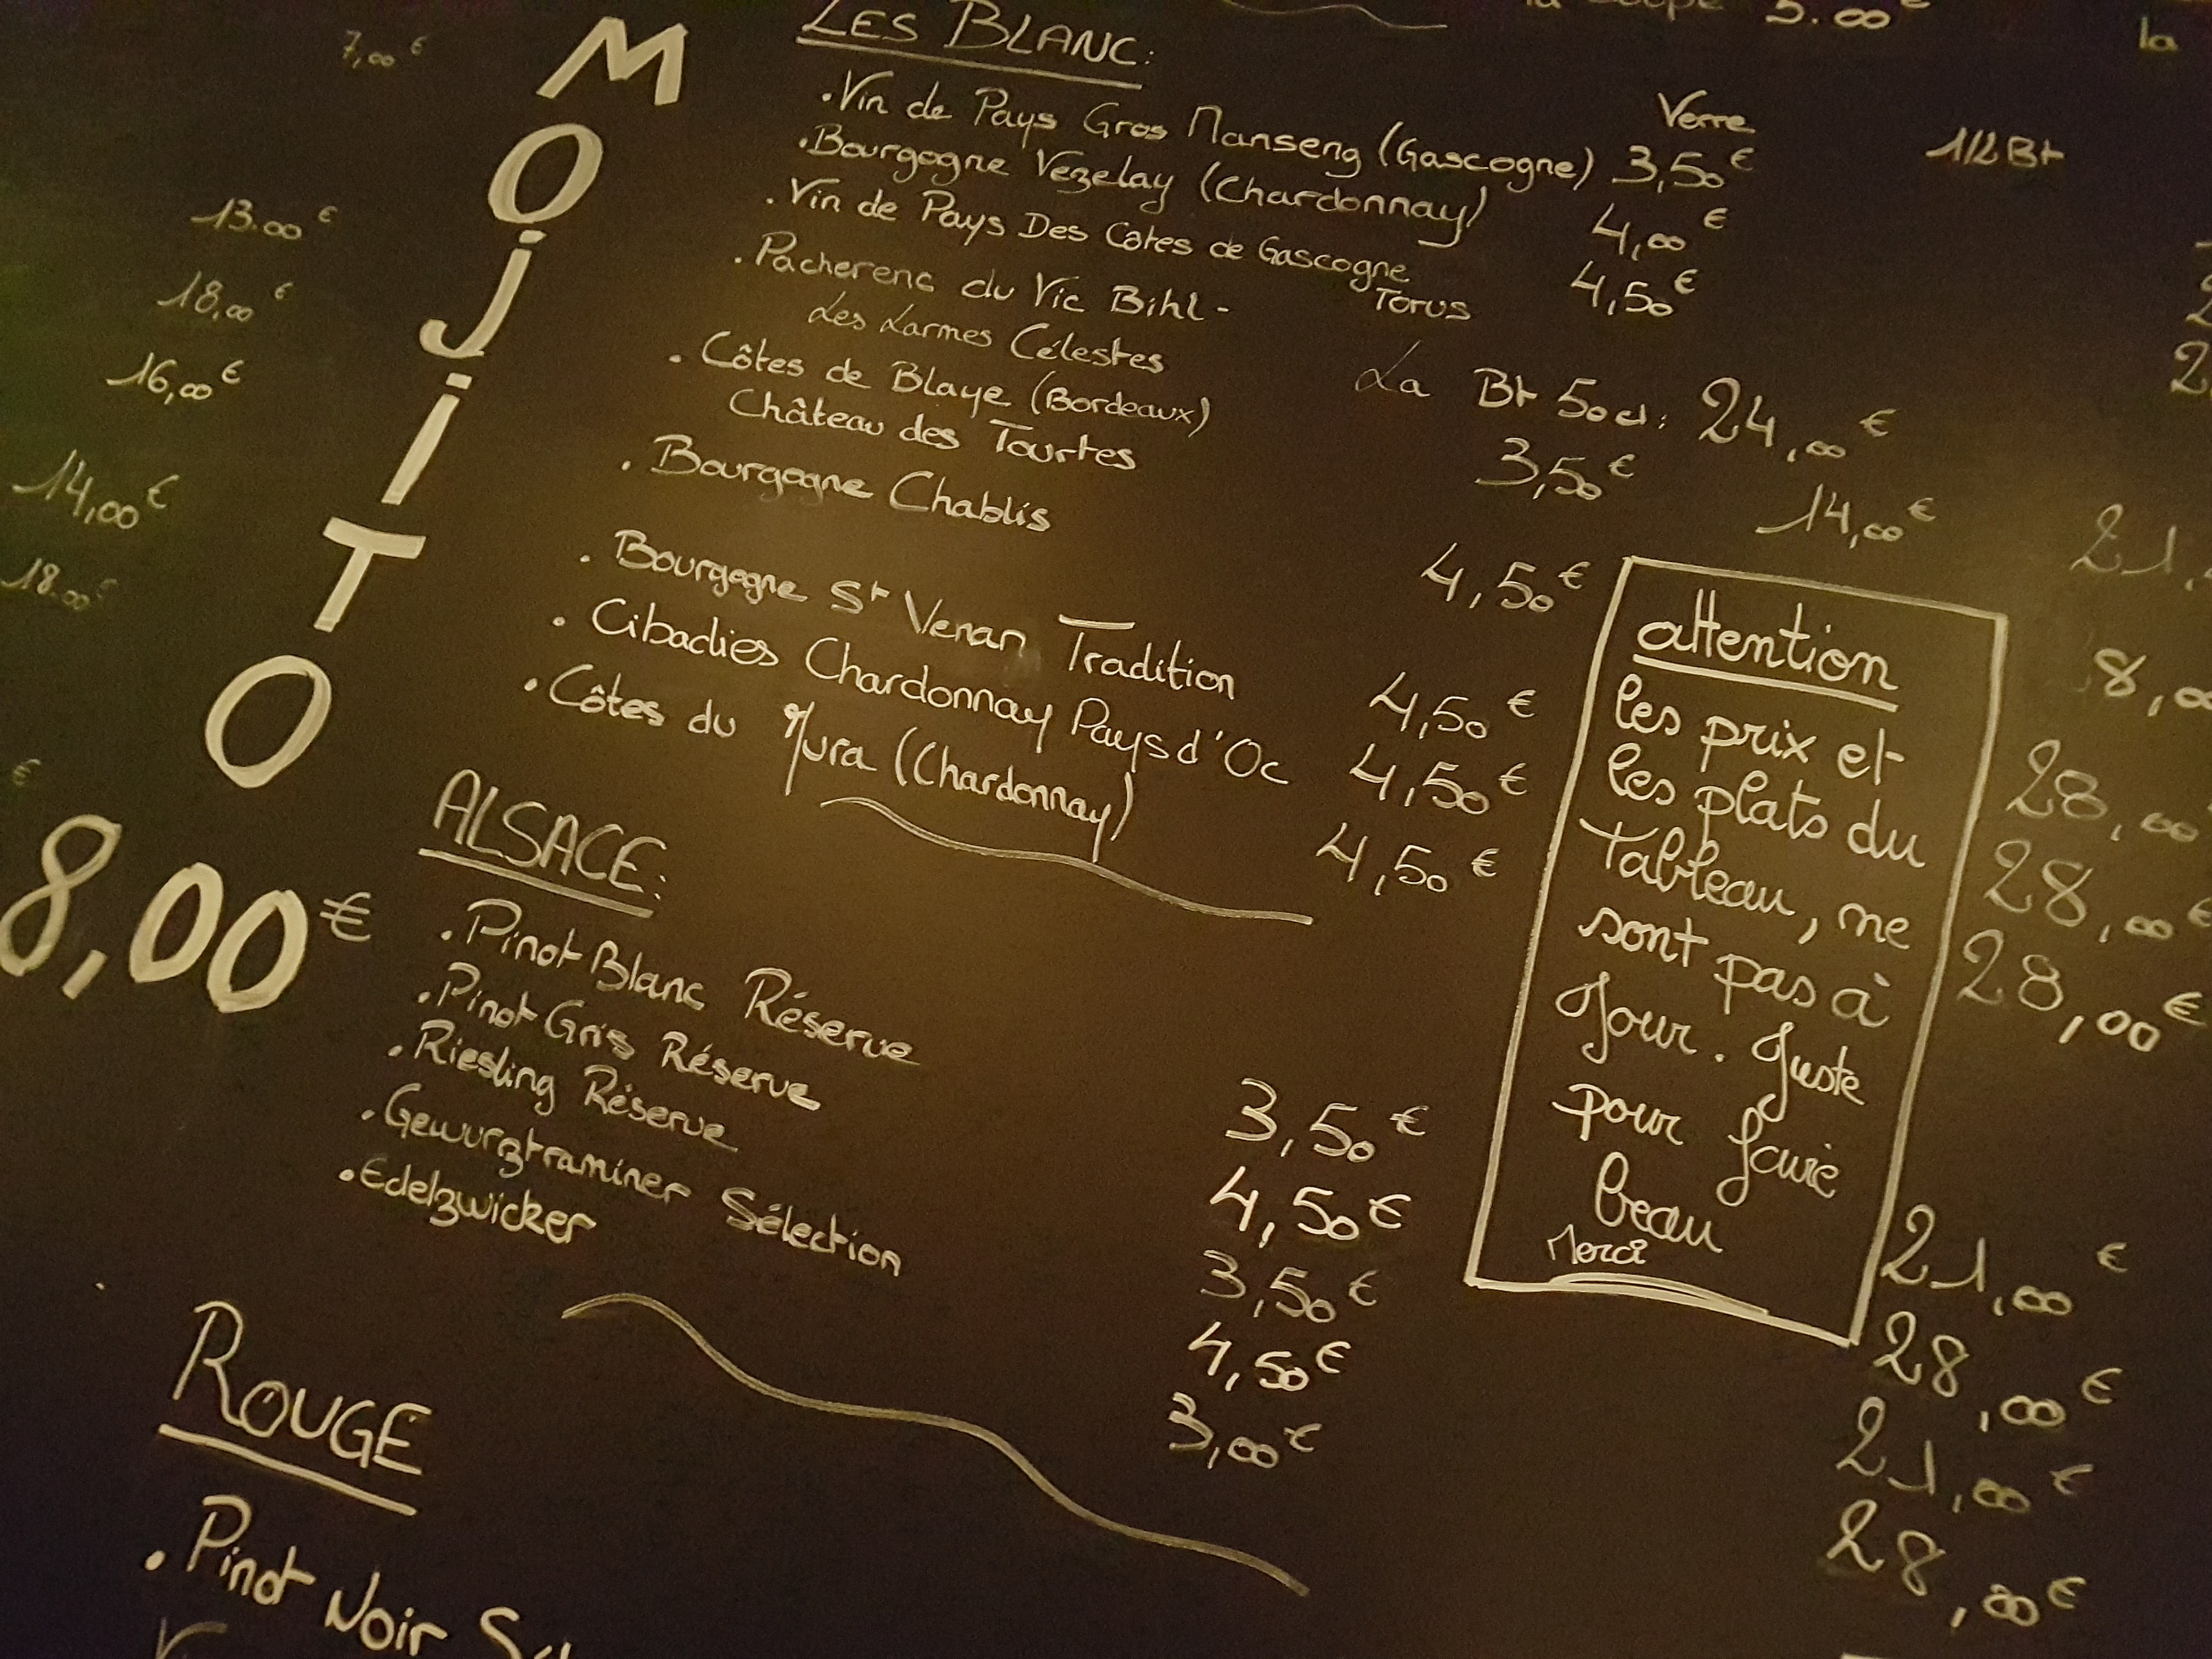 7,00 €
13.00 €
18,00 €
16,00 €
14,00 €
18.00 €
€
MOJITO
8,00 €
5.00 €
la
LES BLANC:
Verre
1/2 Bt
. Vin de Pays Gros Manseng (Gascogne) 3,50 €
. Bourgogne Vezelay (Chardonnay) 4,00 €
. Vin de Pays Des Côtes de Gascogne
Torus 4,50 €
. Pacherenc du Vic Bihl -
Les Larmes Célestes La Bt 50cl: 24,00 €
. Côtes de Blaye (Bordeaux)
Château des Tourtes 3,50 € 14,00 € 21,
. Bourgogne Chablis 4,50 € 8,00
. Bourgogne St Veran Tradition 4,50 € 28,00
. Cibadies Chardonnay Pays d'Oc 4,50 € 28,00 €
. Côtes du Jura (Chardonnay) 4,50 € 28,00 €
attention
les prix et
les plats du
Tableau, ne
sont pas à
Jour. Juste
pour faire
beau
Merci
ALSACE:
. Pinot Blanc Réserve 3,50 € 21,00 €
. Pinot Gris Réserve 4,50 € 28,00 €
. Riesling Réserve 3,50 € 21,00 €
. Gewurztraminer Sélection 4,50 € 28,00 €
. Edelzwicker 3,00 €
ROUGE
. Pinot Noir